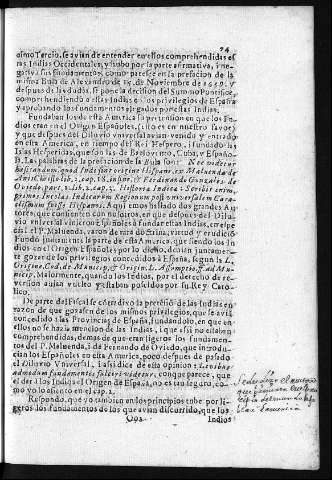 74
cimo Tercio, se avian de entender en ellos comprehendidas es
tas Indias Occidentales, y hubo por la parte afirmativa, i ne-
gativa sus fundamentos, como parece en la prefacion de la
misma Bula de Alexandro de 15. de Noviembre de
despues de las dudas, se pone la decision del Sumo Pontifice,
comprehendiendo a estas Indias en los privilegios de España
y aprobando los fundamentos alegados por estas Indias.
Fundaban los de esta America su pretension en que los In-
dios eran en el Origen Españoles, (esto es en nuestro favor)
y que despues del Diluvio universal avian venido y entrado
en esta America, en tiempo del Rei Hespero, i fundado las
Islas Hesperidas, que son las de Barlovento, Cuba, y Españo-
la. Las palabras de la prefacion de la Bula son:
Origine Hispani, ex Maluenda de
Ferdinand. de Gonzales, de
Oviedo part. 1. lib. 2. cap. 3. Historia Indica: Scribit enim,
primos Incolas Indicarum Regionum post universalem Cata-
clysmum fuisse Hispanos. Aqui tenemos hallados dos grandes Au-
tores, que consienten con nosotros, en que despues del Dilu-
vio entro inmediatamente su poblacion en esta America, es el vno
el P. Maluenda, varon de rara doctrina, virtud y erudicion
Fundò juntamente la parte de esta America, que siendo los In-
dios en el Origen Españoles por lo dicho, devian juntamen-
te gozar de los privilegios concedidos à España, segun la L.
Origine, Cod. de Municip. & Origin. L. Assumptio, ff. ad Mu-
nicip. Maiormente, quando los Indios, por el derecho de re-
version avian vuelto y estaban poseidos por su Rey Cato-
lico.
De parte del Fiscal se contradixo la pretensio de las Indias en
razon de que gozassen de los mismos privilegios, que se avian
concedido à las Provincias de España, fundandolo, en que en
ellos no se hazia mencion de las Indias, i que assi no estaban
comprehendidas, demas de que eran ligeros los fundamentos
del P. Maluenda, i de Fernando de Oviedo, que introdu-
cian los Españoles en esta America, poco despues de pasado
el Diluvio Vniversal, i assi dice de esta opinion:
admodum fundamentis conque parece, que
el dezir los Indios el Origen de España, no es tan seguro, co-
mo yo lo asiento en el cap. 2.
Respondo, que yo tambien en los principios tube por li-
geros los fundamentos de los que avian discurrido, que los
Indios